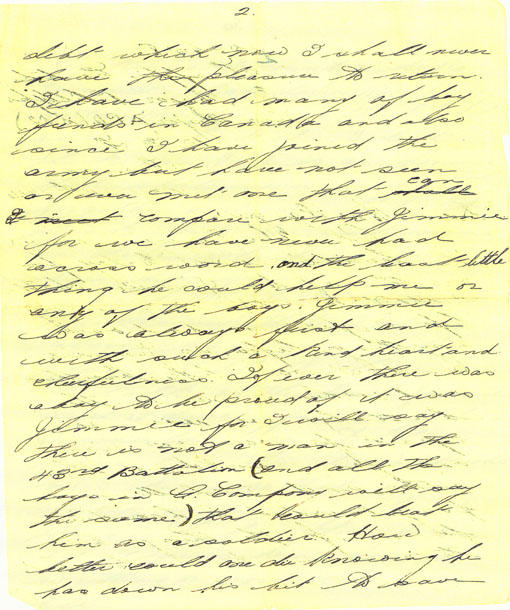 2.
debt which now I shall never
have the pleasure to return.
I have had many of boy
friends in Canada and also
since I have joined the
army but have not seen
or ever met one that can
compare with Jimmie
for we have never had
across word, and the least little
thing he could help me or
any of the boys. Jimmie
was always first and
with such a kind heart and
cheerfulness. If ever there was
a boy to be proud of it was
Jimmie for I will say
there is not a man in the
43rd Battalion (and all the
boys in C. Company will say
the same) that could beat
him as a soldier. How
better could one die knowing he
has down his bit to save